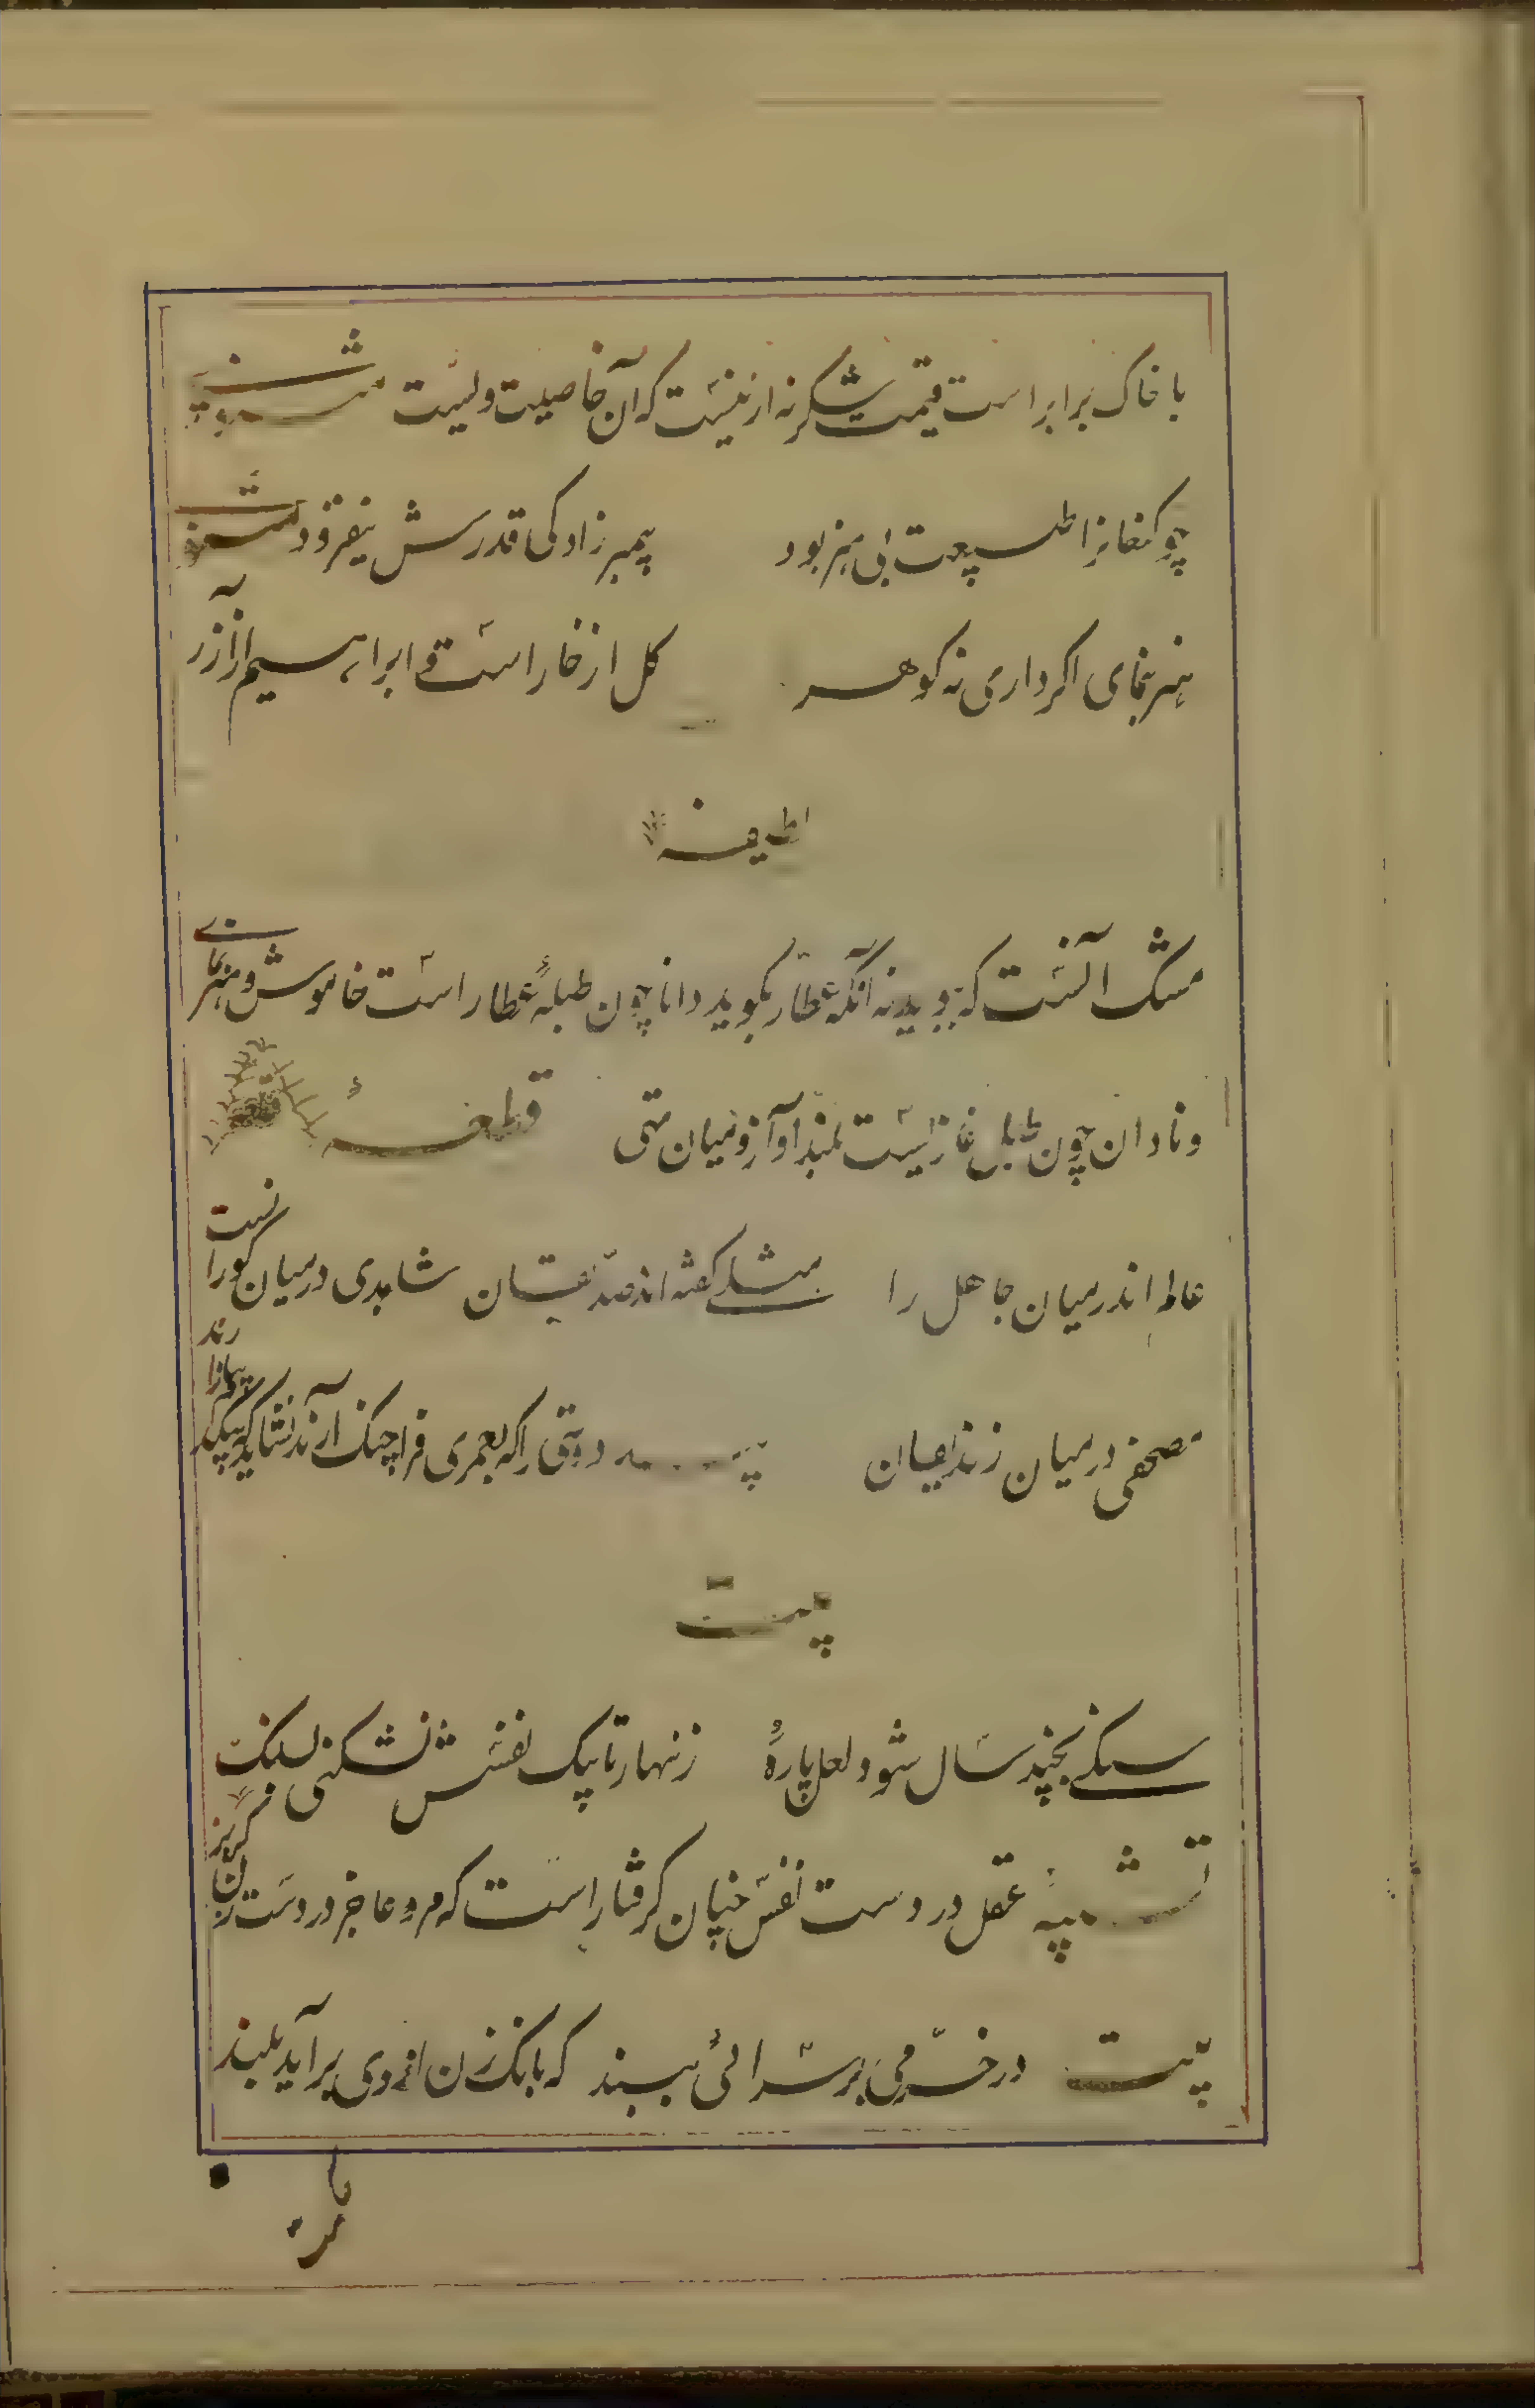 با خاک برابر است قیمت شکر نه از نیست که آن خاصیت ویست مثنوی
چو کنعانرا طبیعت بی هنر بود پیمبر زادگی قدرش نیفزود
هنر بنمای اگر داری نه گوهر گل از خار است و ابراهیم از آزر
لطیفه
مشک آنست که ببوید نه آنکه عطار بگوید دانا چون طبلهٔ عطار است خاموش و هنرنمای
و نادان چون طبل غازیست بلند آواز و میان تهی قطعه
عالم اندر میان جاهل را مثلی گفته اند صدیقان شاهدی در میان کورانست
مصحفی در میان زندیقان پند دوستی را که بعمری فراچنگ آرند نشاید که بیکدم بیازارند
بیت
سنگی بچند سال شود لعل پارهٔ زنهار تا بیک نفسش نشکنی بسنگ
تشبیه عقل در دست نفس چنان گرفتار است که مرد عاجز در دست زن گربز
بیت در خرمی بر سرائی ببند که بانگ زن از وی برآید بلند